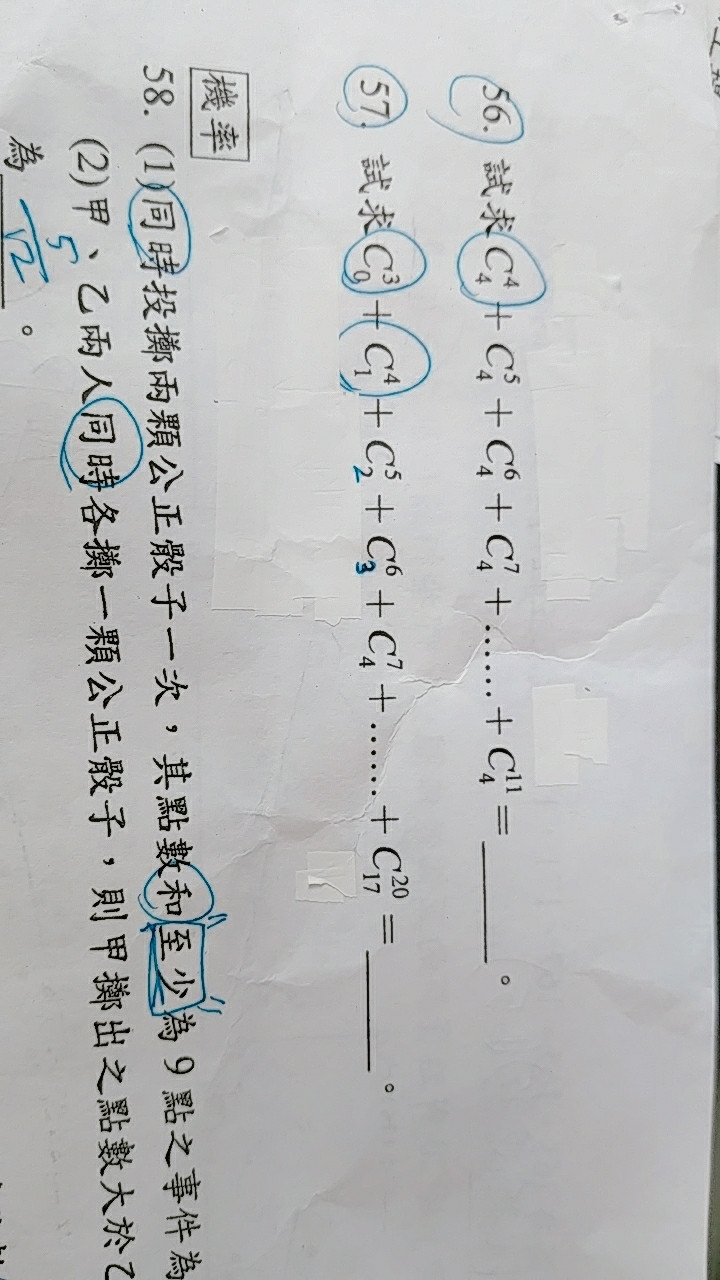 56. 試求 C₄⁴ + C₄⁵ + C₄⁶ + C₄⁷ + …… + C₄¹¹ = ______。
57. 試求 C₀³ + C₁⁴ + C₂⁵ + C₃⁶ + C₄⁷ + …… + C₁₇²⁰ = ______。
機率
58. (1)同時投擲兩顆公正骰子一次，其點數和至少為 9 點之事件為
(2)甲、乙兩人同時各擲一顆公正骰子，則甲擲出之點數大於乙
為 5/12 。